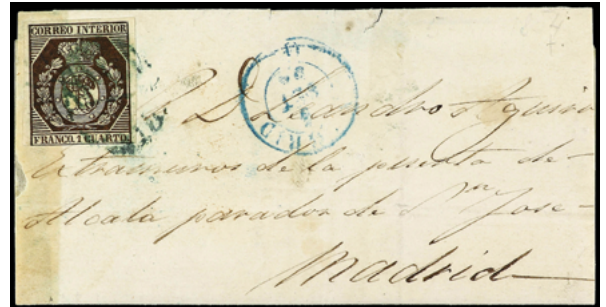 CORREO INTERIOR
FRANCO. 1 CUARTO.
D. Leandro Aguirre
Extramuros de la puerta de
Alcalá parador de Sn Jose
Madrid